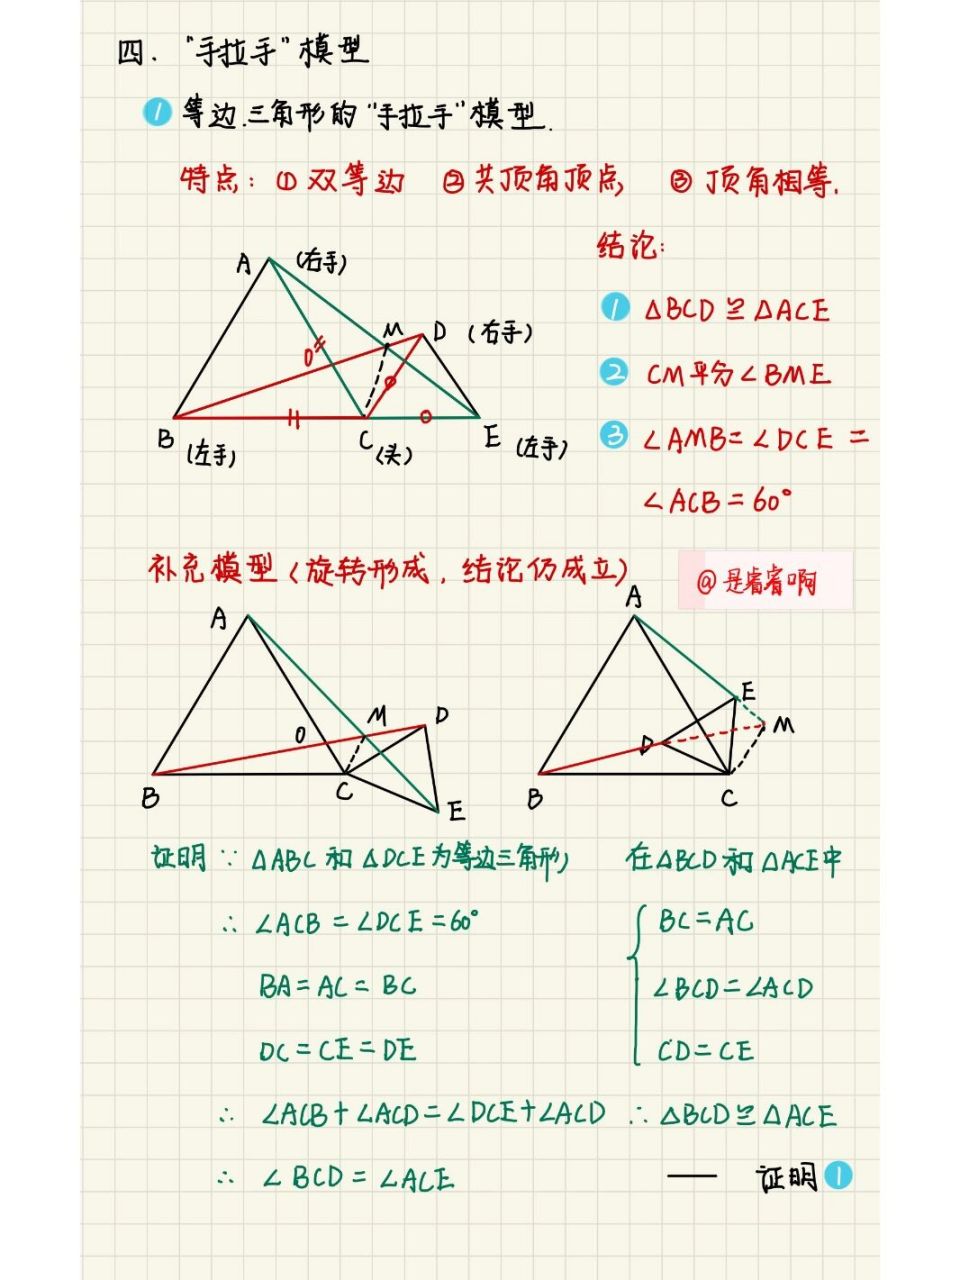 四. “手拉手”模型
1 等边三角形的“手拉手”模型.
特点: ① 双等边 ② 共顶角顶点, ③ 顶角相等.
结论:
1 △BCD≌△ACE
2 CM平分∠BME
3 ∠AMB=∠DCE=
∠ACB=60°
A (右手)
M D (右手)
O
B (左手) C (头) E (左手)
补充模型(旋转形成,结论仍成立)
@是睿睿啊
A
M D
O
B C E
A
E
M
D
B C
证明 ∵ △ABC 和 △DCE为等边三角形,
∴ ∠ACB=∠DCE=60°
BA=AC=BC
DC=CE=DE
∴ ∠ACB+∠ACD=∠DCE+∠ACD
∴ ∠BCD=∠ACE
在△BCD和△ACE中
BC=AC
∠BCD=∠ACD
CD=CE
∴ △BCD≌△ACE
—— 证明1